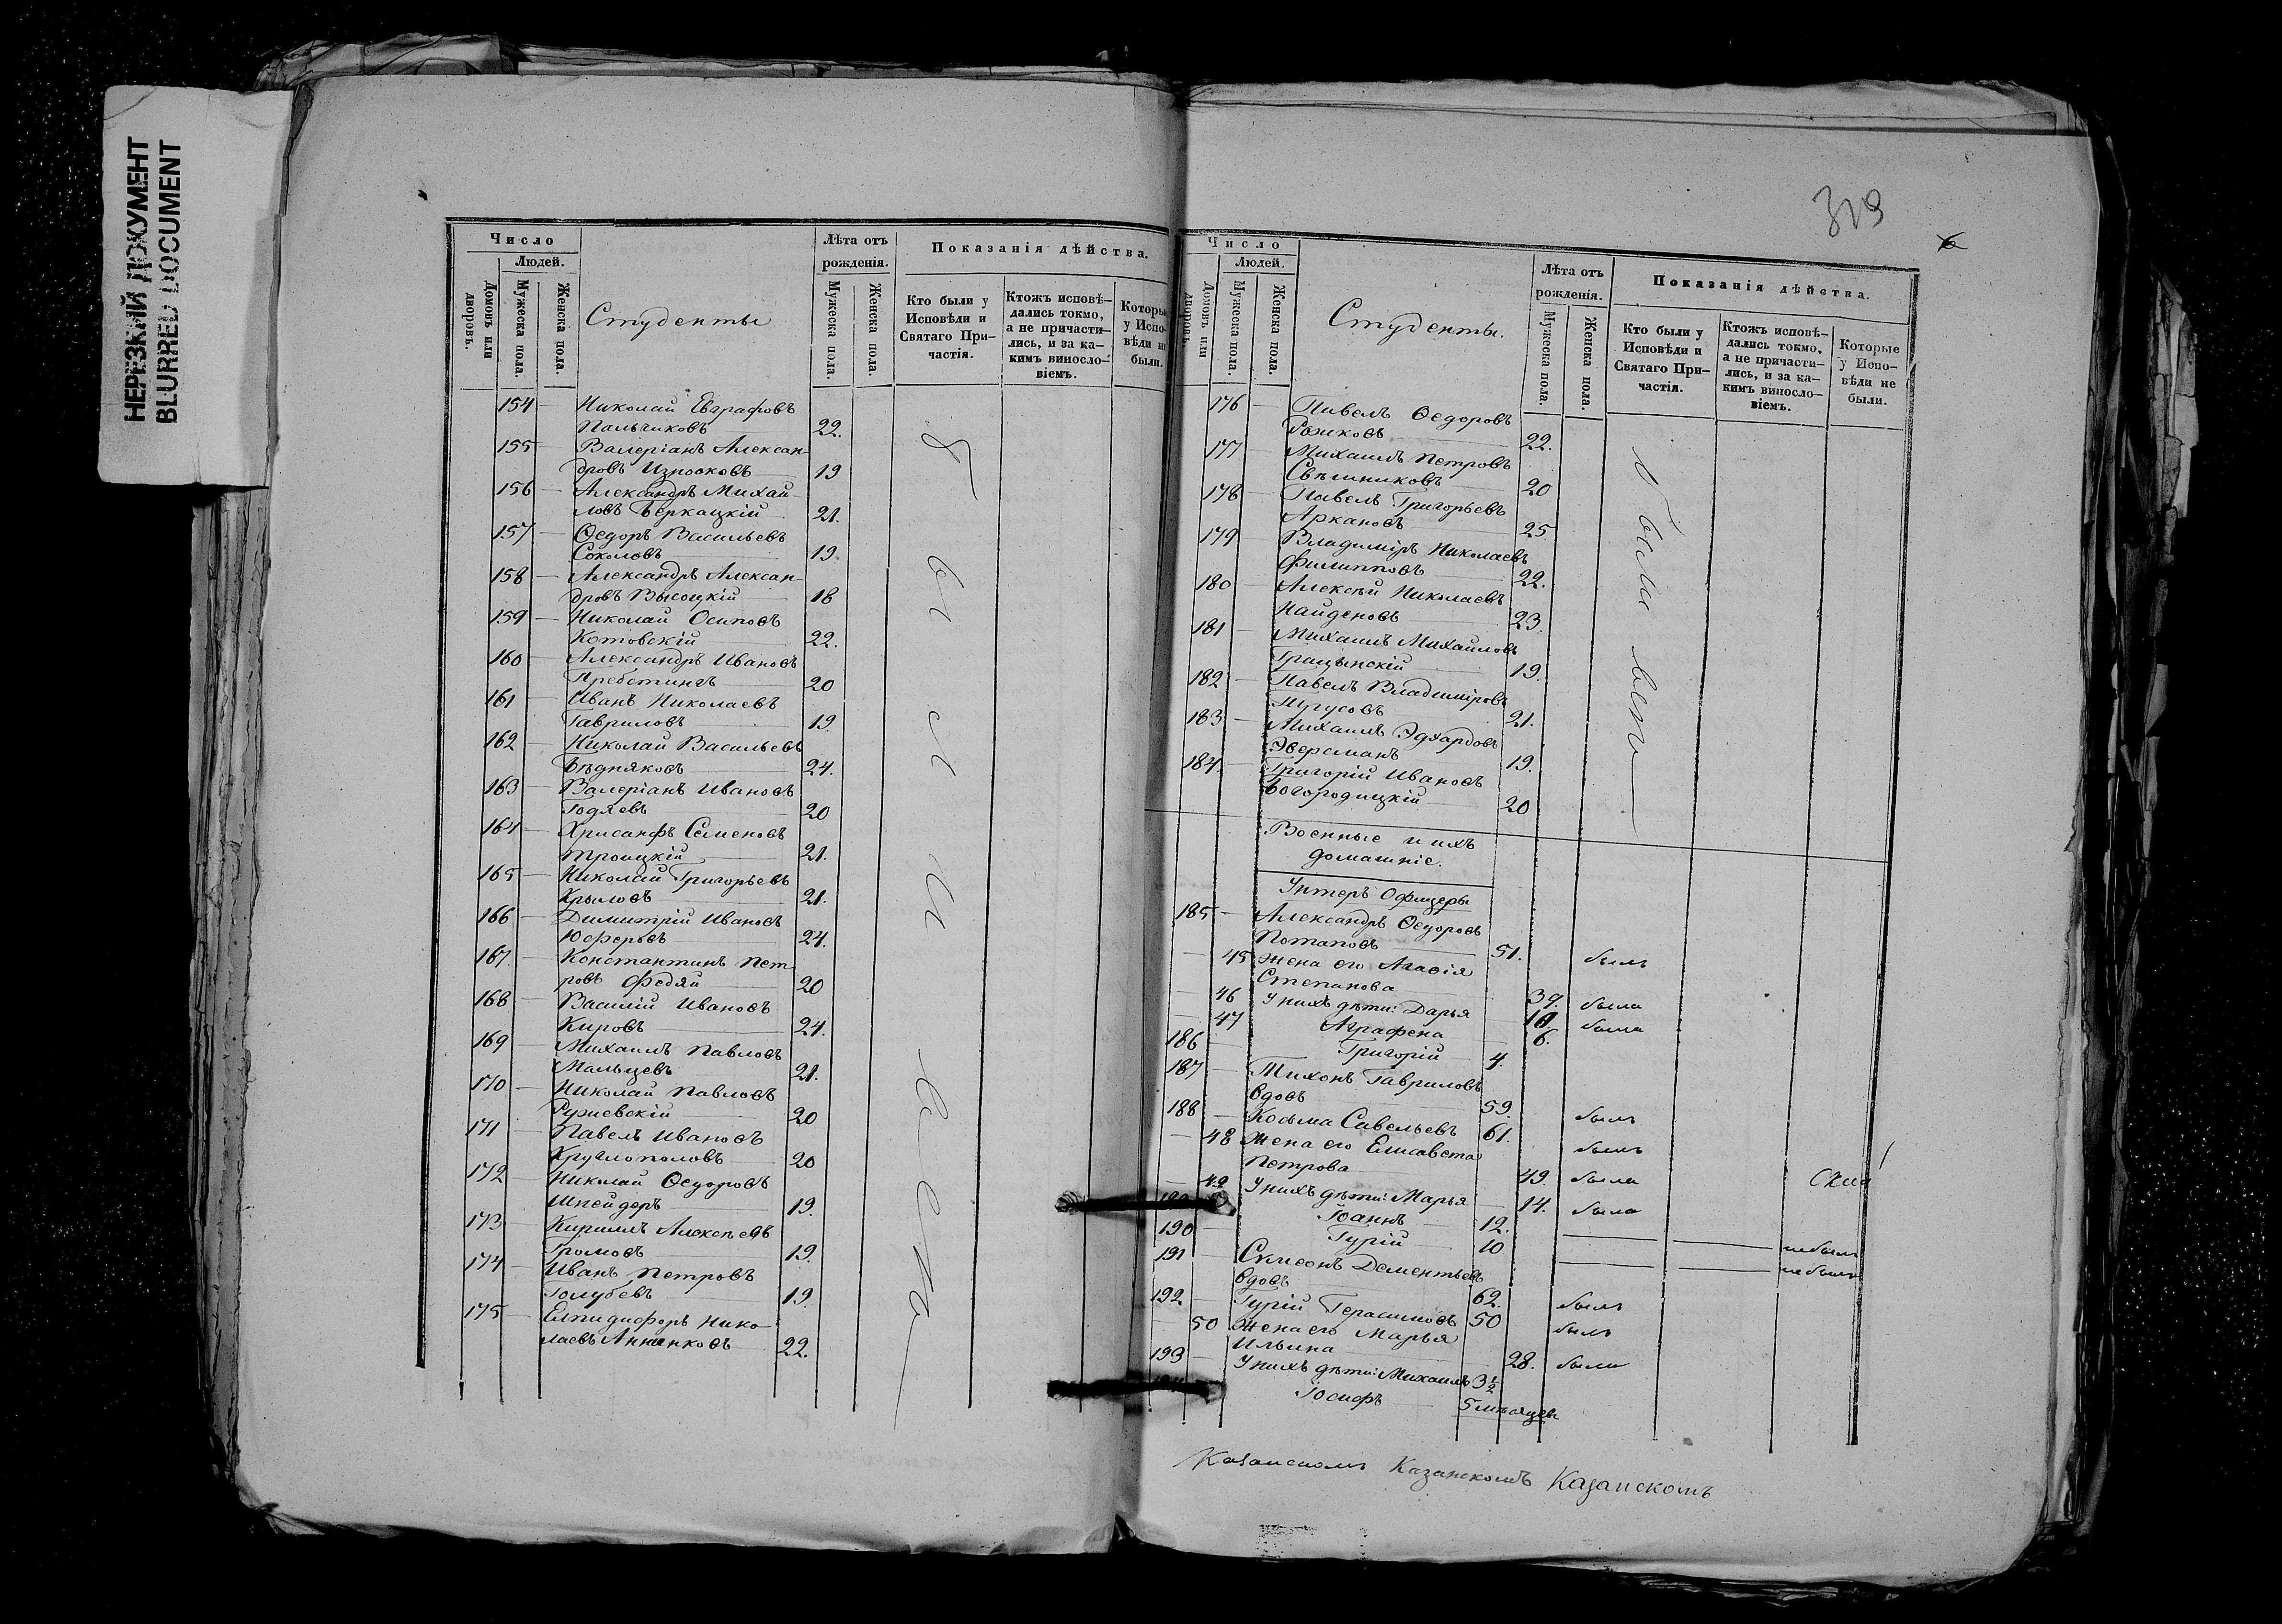 НЕРЕЗКИЙ ДОКУМЕНТ
BLURRED DOCUMENT
Число
Людей.
Домовъ или дворовъ.
Мужеска пола.
Женска пола.
Студенты
Лѣта отъ рожденія.
Мужеска пола.
Женска пола.
Показанія дѣйства.
Кто были у Исповѣди и Святаго Причастія.
Ктожъ исповѣдались токмо, а не причастились, и за какимъ винословіемъ.
Которые у Исповѣди не были.
154 — Николай Евграфовъ
Пальчиковъ 22.
155 — Валеріанъ Алексан-
дровъ Износковъ 19
156 — Александръ Михай-
ловъ Беркацкій 21.
157 — Ѳедоръ Васильевъ
Соколовъ 19.
158 — Александръ Алексан-
дровъ Высоцкій 18
159 — Николай Осиповъ
Котовскій 22.
160 — Александръ Ивановъ
Пребстингъ 20
161 — Иванъ Николаевъ
Гавриловъ 19.
162 — Николай Васильевъ
Бѣдняковъ 24.
163 — Валеріанъ Ивановъ
Годяевъ 20
164 — Хрисанфъ Семеновъ
Троицкій 21.
165 — Николай Григорьевъ
Крыловъ 21.
166 — Димитрій Ивановъ
Юферовъ 24.
167 — Константинъ Пет-
ровъ Федяй 20
168 — Василій Ивановъ
Кировъ 24.
169 — Михаилъ Павловъ
Мальцевъ 21.
170 — Николай Павловъ
Ружевскій 20
171 — Павелъ Ивановъ
Круглополовъ 20
172 — Николай Ѳедоровъ
Шнейдеръ 19.
173 — Кириллъ Алексѣевъ
Громовъ 19.
174 — Иванъ Петровъ
Голубевъ 19.
175 — Елпидифоръ Нико-
лаевъ Анненковъ 22.
319
6
Число
Людей.
Домовъ или дворовъ.
Мужеска пола.
Женска пола.
Студенты.
Лѣта отъ рожденія.
Мужеска пола.
Женска пола.
Показанія дѣйства.
Кто были у Исповѣди и Святаго Причастія.
Ктожъ исповѣдались токмо, а не причастились, и за какимъ винословіемъ.
Которые у Исповѣди не были.
176 — Павелъ Ѳедоровъ
Рожковъ 22.
177 — Михаилъ Петровъ
Свѣшниковъ 20
178 — Павелъ Григорьевъ
Аркановъ 25
179 — Владиміръ Николаевъ
Филипповъ 22.
180 — Алексѣй Николаевъ
Найденовъ 23.
181 — Михаилъ Михайловъ
Грацынскій 19.
182 — Павелъ Владиміровъ
21.
183 — Михаилъ Эдуардовъ
Эверсманъ 19.
184. — Григорій Ивановъ
Богородицкій 20
были
Военные и ихъ
домашніе.
Унтеръ Офицеры
185 — Александръ Ѳедоровъ
Потаповъ 51. былъ
— 45 Жена его Агафія
Степанова 39. была
— 46 У нихъ дѣти: Дарья была
— 47 Аграфена 6.
186 — Григорій 4.
187 — Тихонъ Гавриловъ
вдовъ 59. былъ
188 — Косьма Савельевъ 61. былъ
— 48 Жена его Елисавета
Петрова 49. была
— 49 У нихъ дѣти: Марья 14. была
Іоаннъ 12. небылъ
190 — Гурій 10 небылъ
191 — Сѵмеонъ Дементьевъ
вдовъ 62. былъ
192 — Гурій Герасимовъ 50 былъ
— 50 Жена его Марья
Ильина 28. была
193 — У нихъ дѣти: Михаилъ 3½
Іосифъ 5 мѣсяцевъ
Казанскомъ Казанскомъ Казанскомъ